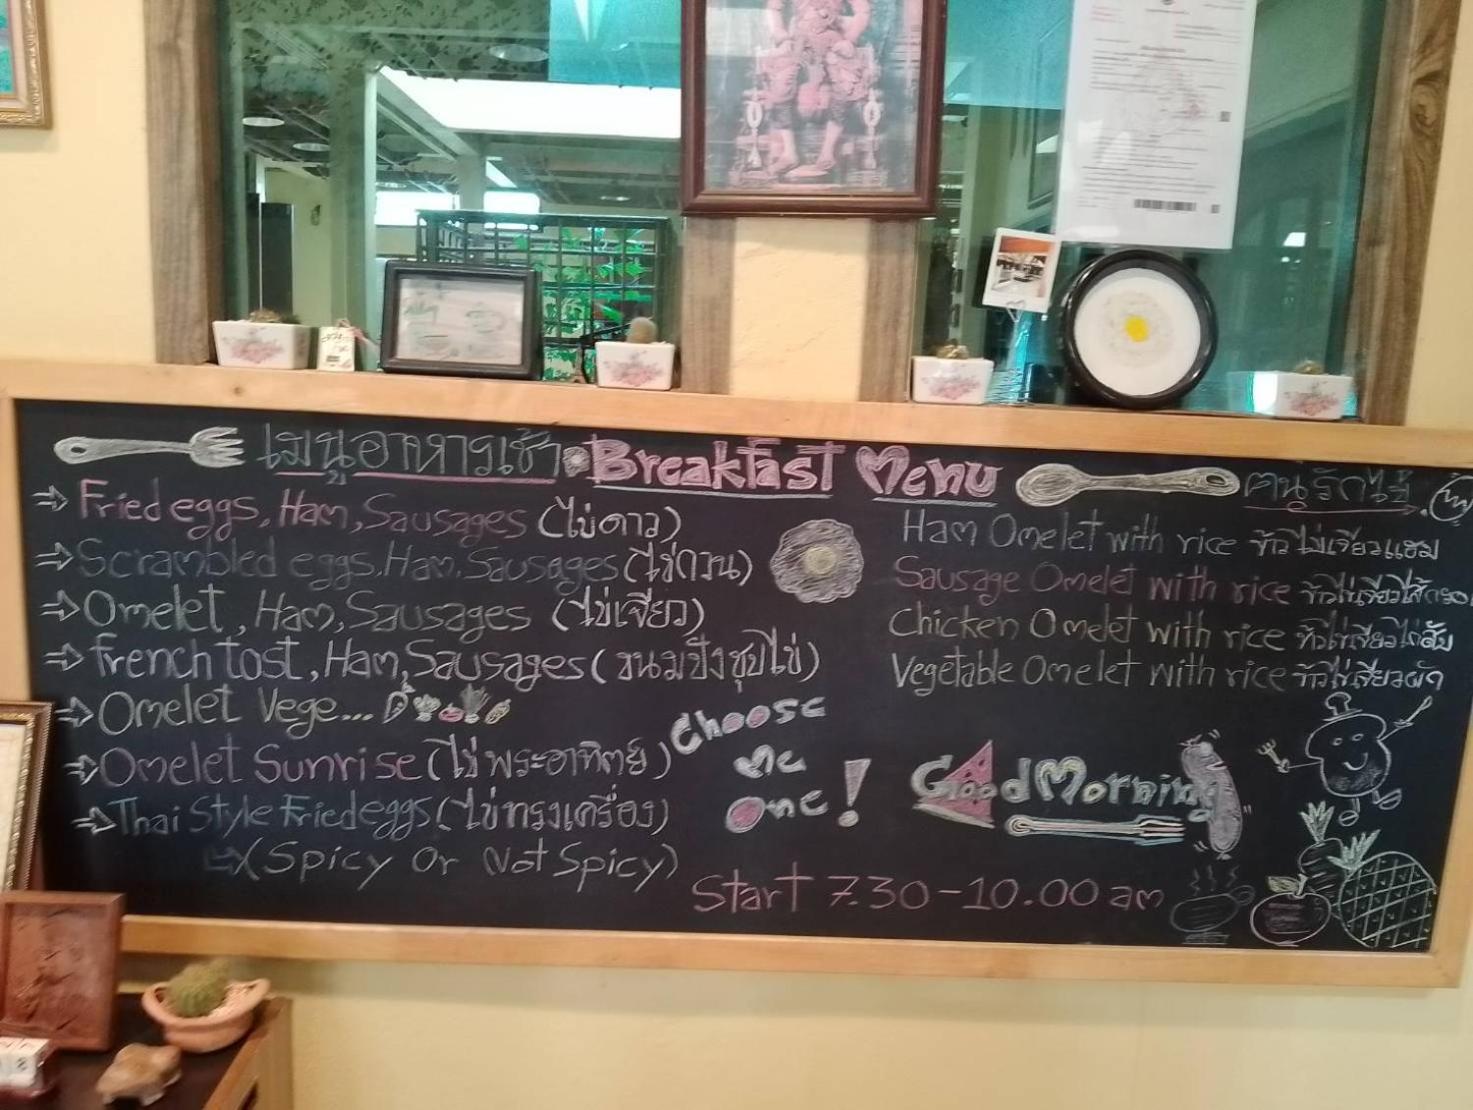 เมนูอาหารเช้า Breakfast Menu คนรักไข่
Fried eggs, Ham, Sausages (ไข่ดาว)
Scrambled eggs, Ham, Sausages (ไข่กวน)
Omelet, Ham, Sausages (ไข่เจียว)
French tost, Ham, Sausages (ขนมปังชุปไข่)
Omelet Vege...
Omelet Sunrise (ไข่พระอาทิตย์)
Thai Style Fried eggs (ไข่ทรงเครื่อง)
(Spicy Or Not Spicy)
Choose
me
one!
Ham Omelet with rice ข้าวไข่เจียวแฮม
Sausage Omelet with rice ข้าวไข่เจียวไส้กรอก
Chicken Omelet with rice ข้าวไข่เจียวไก่สับ
Vegetable Omelet with rice ข้าวไข่เจียวผัก
Good Morning
Start 7.30-10.00 am